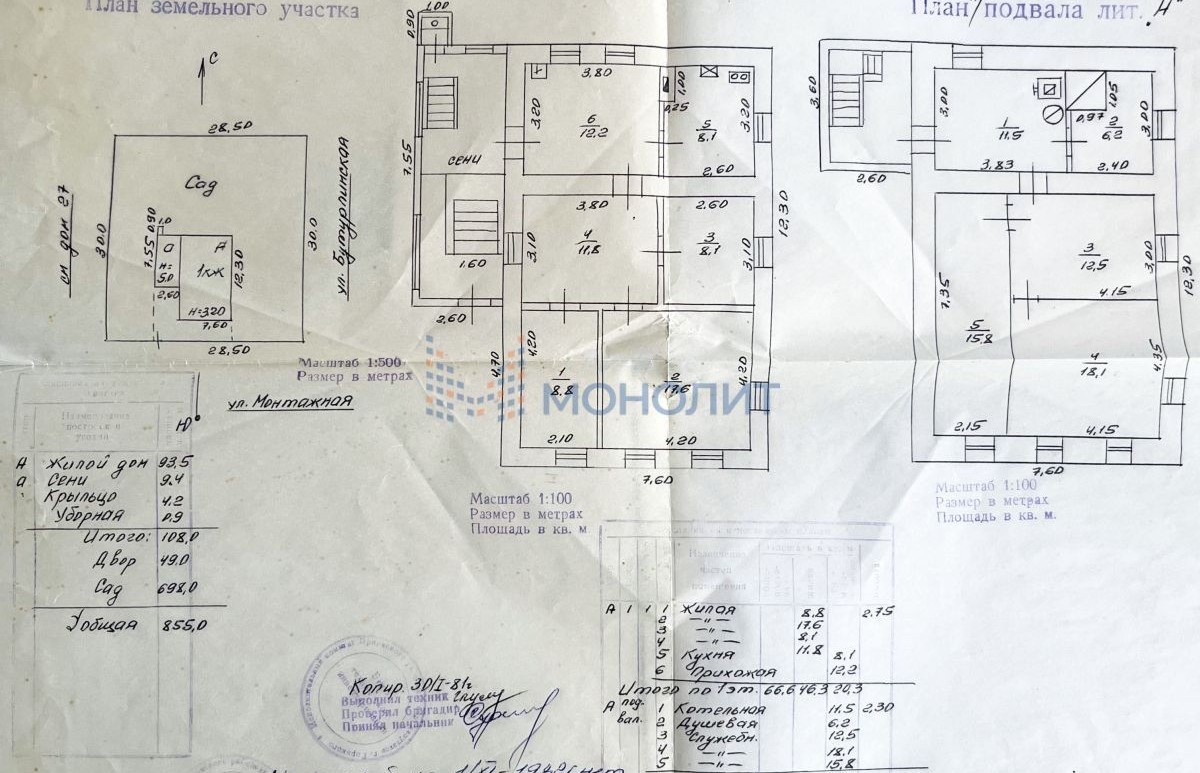 План земельного участка
С
28,50
Сад
30.0
30.0
см дом 27
ул. Бутурлинская
0,90
1.0
7.55
а
А
1кж
12.30
H=
5.0
2.60
H=3.20
7.60
28.50
Масштаб 1:500
Размер в метрах
ул. Монтажная
А Жилой дом 93.5
а Сени 9.4
Крыльцо 4.2
Уборная 0.9
Итого: 108,0
Двор 49.0
Сад 698,0
общая 855,0
1.00
0.90
7.55
сени
1.60
2.60
3.80
3.20
6
12.2
1,00
0.25
5
8.1
3.20
2.60
3.80
3.10
4
11.8
2.60
3
8.1
3.10
12,30
4.70
4.20
1
8.8
2.10
2
17.6
4.20
4.20
7.60
МОНОЛИТ
Масштаб 1:100
Размер в метрах
Площадь в кв. м
План подвала лит. „А"
3.60
2.60
3,00
1
11.5
3.83
0,97
1.05
2
6.2
3.00
2.40
3
12.5
3.00
4.15
12.30
7.35
5
15.8
4
18.1
4.35
2.15
4.15
7.60
Масштаб 1:100
Размер в метрах
Площадь в кв. м.
А 1 1 1 Жилая 8.8 2.75
2 —"— 17.6
3 —"— 8,1
4 —"— 11.8
5 Кухня 8.1
6 Прихожая 12.2
Итого по 1 эт. 66.6 46,3 20,3
А под. вал. 1 Котельная 11.5 2,30
2 Душевая 6.2
3 Служебн. 12,5
4 —"— 18.1
5 —"— 15.8
Копир. 30/I-81г
Выполнил техник
Проверил бригадир
Принял начальник